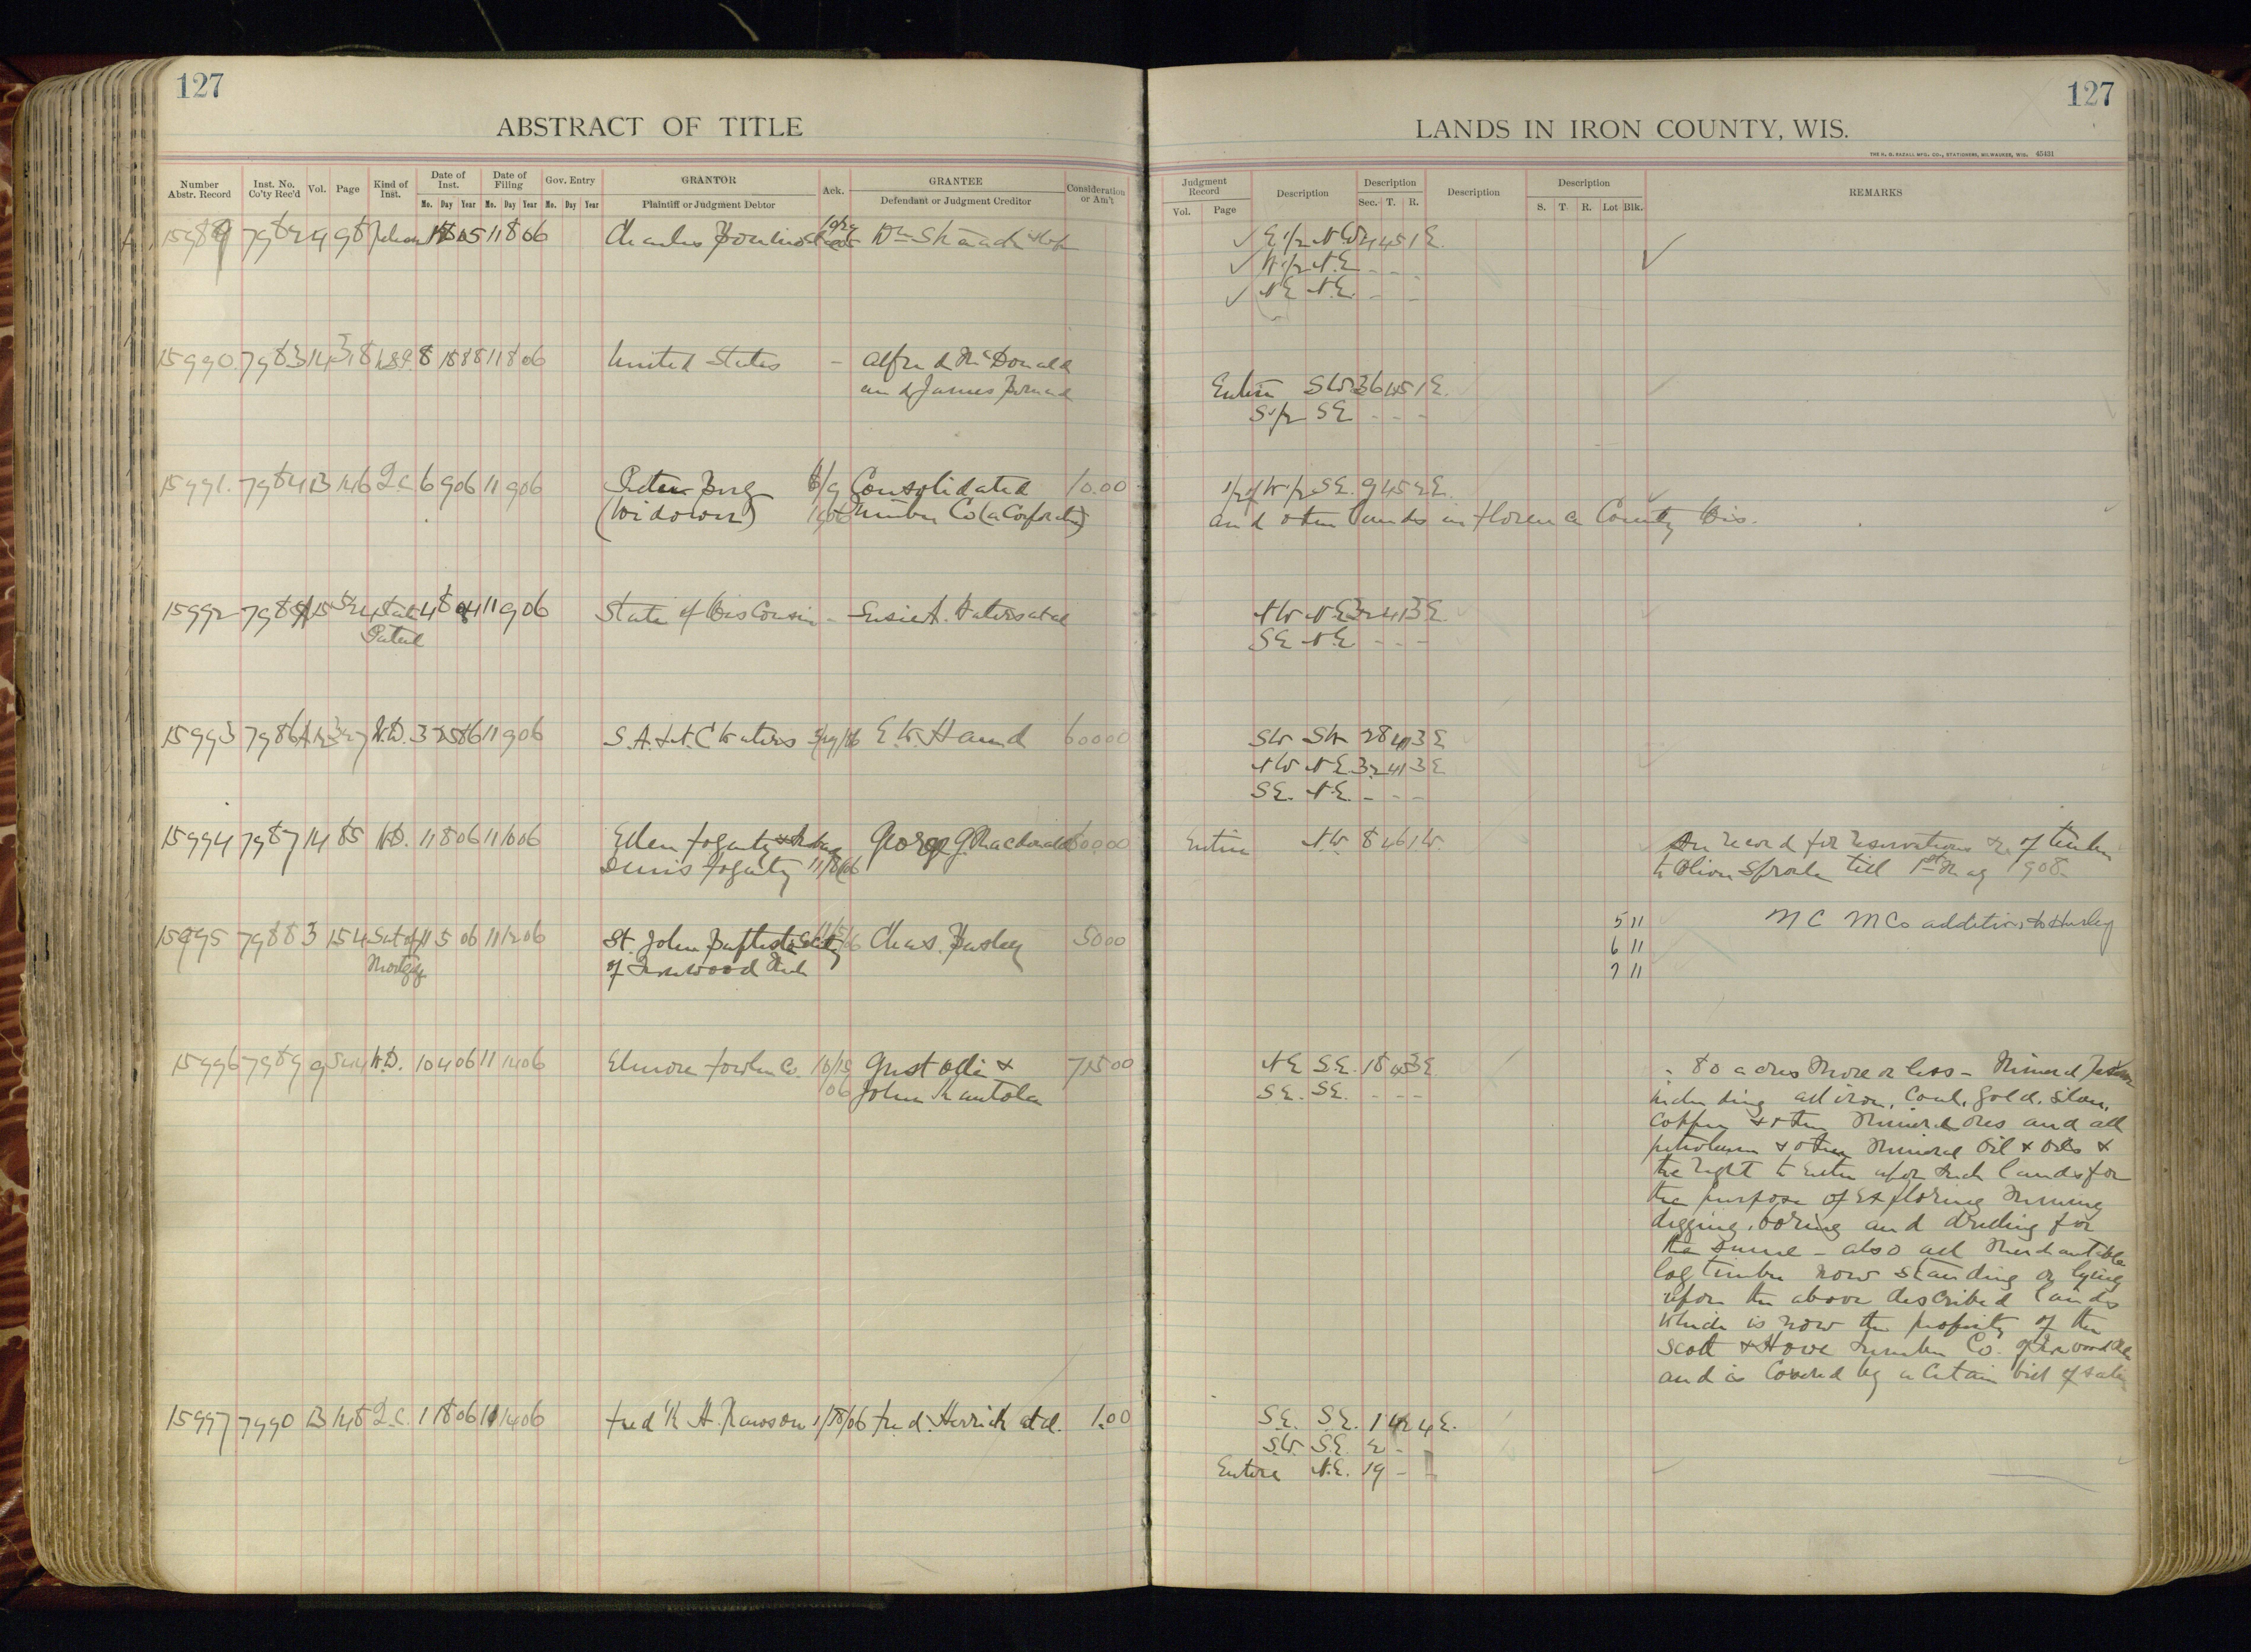 127
127
ABSTRACT OF TITLE
LANDS IN IRON COUNTY, WIS.
THE H. G. RAZALL MFG. CO., STATIONERS, MILWAUKEE, WIS. 45431
Number Abstr. Record
Inst. No. Co'ty Rec'd
Vol.
Page
Kind of Inst.
Date of Inst.
Date of Filing
Gov. Entry
Mo. Day Year Mo. Day Year Mo. Day Year
GRANTOR
Plaintiff or Judgment Debtor
Ack.
GRANTEE
Defendant or Judgment Creditor
Consideration or Am't
Judgment Record
Vol. Page
Description
Description
Sec. T. R.
Description
Description
S. T. R. Lot Blk.
REMARKS
15989 7982 9 98 11 8 06 Charles Wm
E 1/2 N W 45 1 E.
W 1/2 N.E. - - -
N E N.E. - -
15990. 7983 14 8 11 8 06 United States - Alfred McDonald
and James
Entire S W. 36 45 1 E.
S 1/2 SE - - -
15991. 7984 13 146 Q.C. 6 9 06 11 9 06 Peter Berg Consolidated 10.00
(Widower) Lumber Co (a Corporation)
1/2 of W 1/2 S E. 9 45 2 E.
and other lands in Florence County Wis.
15992 7985 15 524 State 4 8 11 9 06 State of Wisconsin - Waters et al
Patent
N W N E 32 41 3 E.
SE N.E. - - -
15993 7986 W.D. 3 25 86 11 9 06 S. A. & N. C Waters E. W. Hand 60000
SW SW 28 41 3 E
N W N E 32 41 3 E
S E. N.E. - - -
15994 7987 14 85 W.D. 11 8 06 11 10 06 Ellen Fogarty & George G. Macdonald
Denis Fogarty 11/8/06
Entire N.W. 8 46 1 W.
See record for reservations &c of timber
to Oliver Sproule till 1st May 1908
15995 7988 3 154 Sat of 11 5 06 11 12 06 St. John Baptiste Society Chas. 5000
Mortgage of Ironwood Mich
5 11 M C M Co addition to Hurley
6 11
7 11
15996 7989 9 544 W.D. 10 4 06 11 14 06 Elmore Fowler Co. 10/15 Gust &
06 John
N E S.E. 18 45 3 E
S E. SE. - - -
80 acres more or less - Mineral
including all iron, coal, gold, silver,
copper & other mineral ores and all
petroleum & other mineral oil & oils &
the right to enter upon such lands for
the purpose of exploring mining
digging, boring and drilling for
the same - also all merchantable
log timber now standing or lying
upon the above described lands
which is now the property of the
Scott & Howe Lumber Co. of Ironwood
and is covered by a certain bill of sale
15997 7990 13 148 Q.C. 1 18 06 11 14 06 Fred'k H. Rawson 1/18/06 Fred. Herrick et al. 1.00
S.E. S E. 1 42 4 E.
S.W. S.E. 2 -
Entire N.E. 19 - -